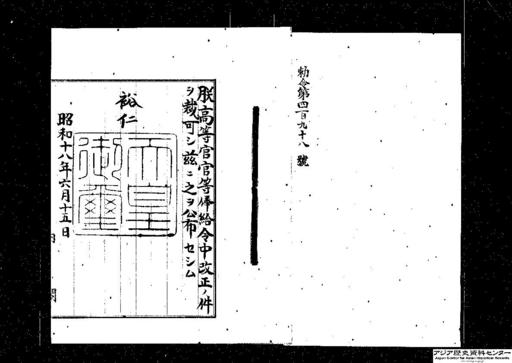 勅令第四百九十八號
朕高等官官等俸給令中改正ノ件
ヲ裁可シ茲ニ之ヲ公布セシム
裕仁
天皇
御璽
昭和十八年六月十五日
アジア歴史資料センター
Japan Center for Asian Historical Records